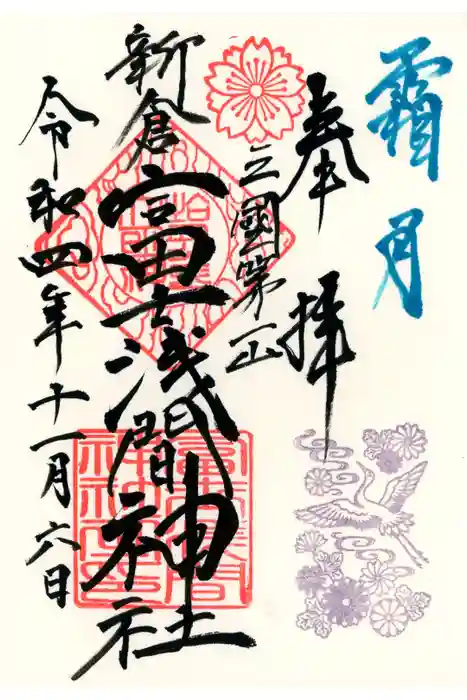 霜月
奉拝
三國第一山
新倉
富士浅間神社
令和四年十一月六日